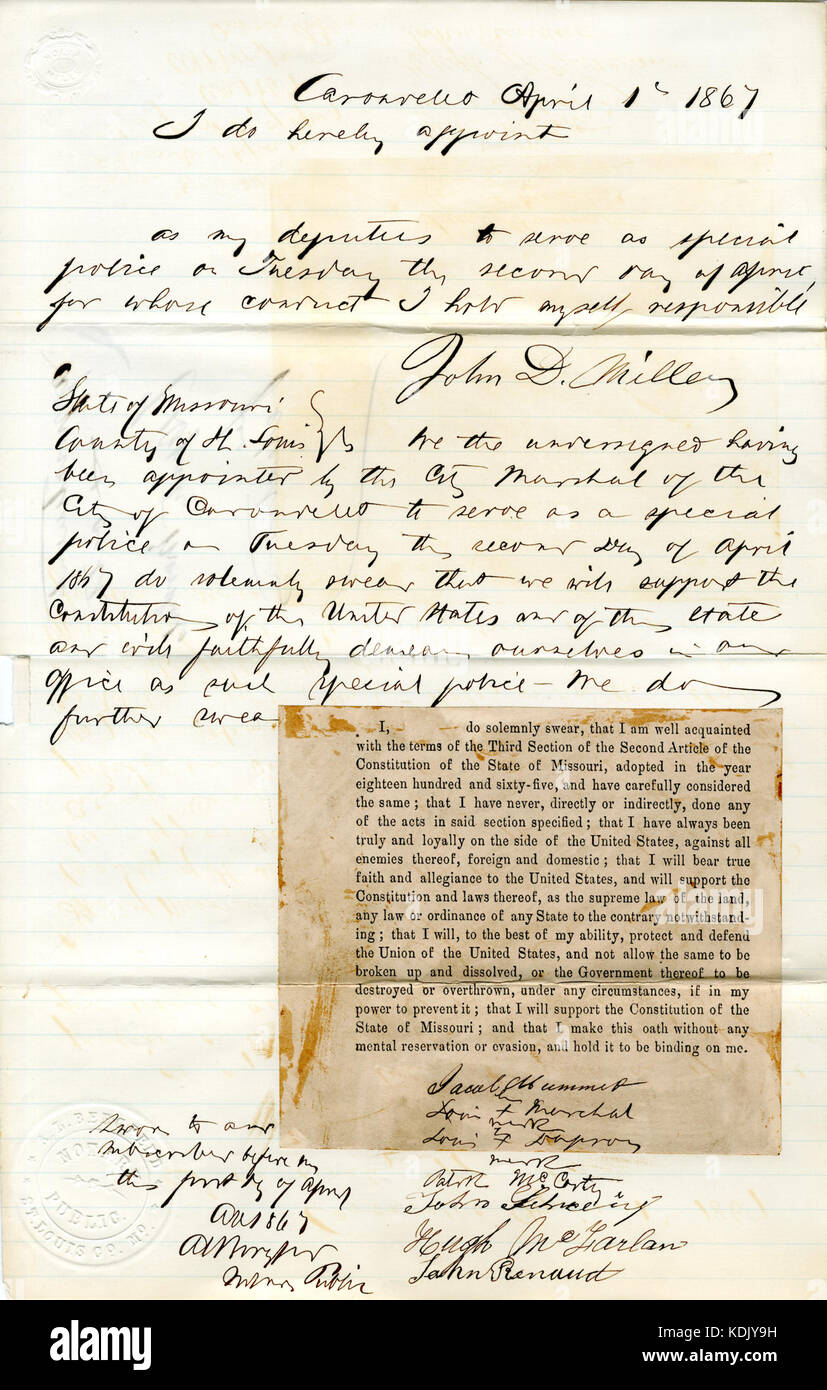 Carondelet April 1st 1867
I do hereby appoint
as my deputies to serve as special
police on Tuesday the second day of April,
for whose conduct I hold myself responsible
John D. Miller
State of Missouri
County of St. Louis } ss We the undersigned having
been appointed by the City Marshal of the
City of Carondelet to serve as a special
police on Tuesday the second Day of April
1867 do solemnly swear that we will support the
Constitution of the United States and of this State
and will faithfully demean ourselves in our
office as such special police - We do
further swear
I, do solemnly swear, that I am well acquainted
with the terms of the Third Section of the Second Article of the
Constitution of the State of Missouri, adopted in the year
eighteen hundred and sixty-five, and have carefully considered
the same ; that I have never, directly or indirectly, done any
of the acts in said section specified ; that I have always been
truly and loyally on the side of the United States, against all
enemies thereof, foreign and domestic ; that I will bear true
faith and allegiance to the United States, and will support the
Constitution and laws thereof, as the supreme law of the land,
any law or ordinance of any State to the contrary notwithstand-
ing ; that I will, to the best of my ability, protect and defend
the Union of the United States, and not allow the same to be
broken up and dissolved, or the Government thereof to be
destroyed or overthrown, under any circumstances, if in my
power to prevent it ; that I will support the Constitution of the
State of Missouri ; and that I make this oath without any
mental reservation or evasion, and hold it to be binding on me.
Jacob
Louis X Marchal
mark
Louis X
mark
Patrik McCarty
John
Hugh McFarlan
John Renaud
Sworn to and
subscribed before me
this first day of April
AD 1867
Notary Public
NOTARY
PUBLIC.
ST. LOUIS CO. MO.
alamy
Image ID: KDJY9H
www.alamy.com